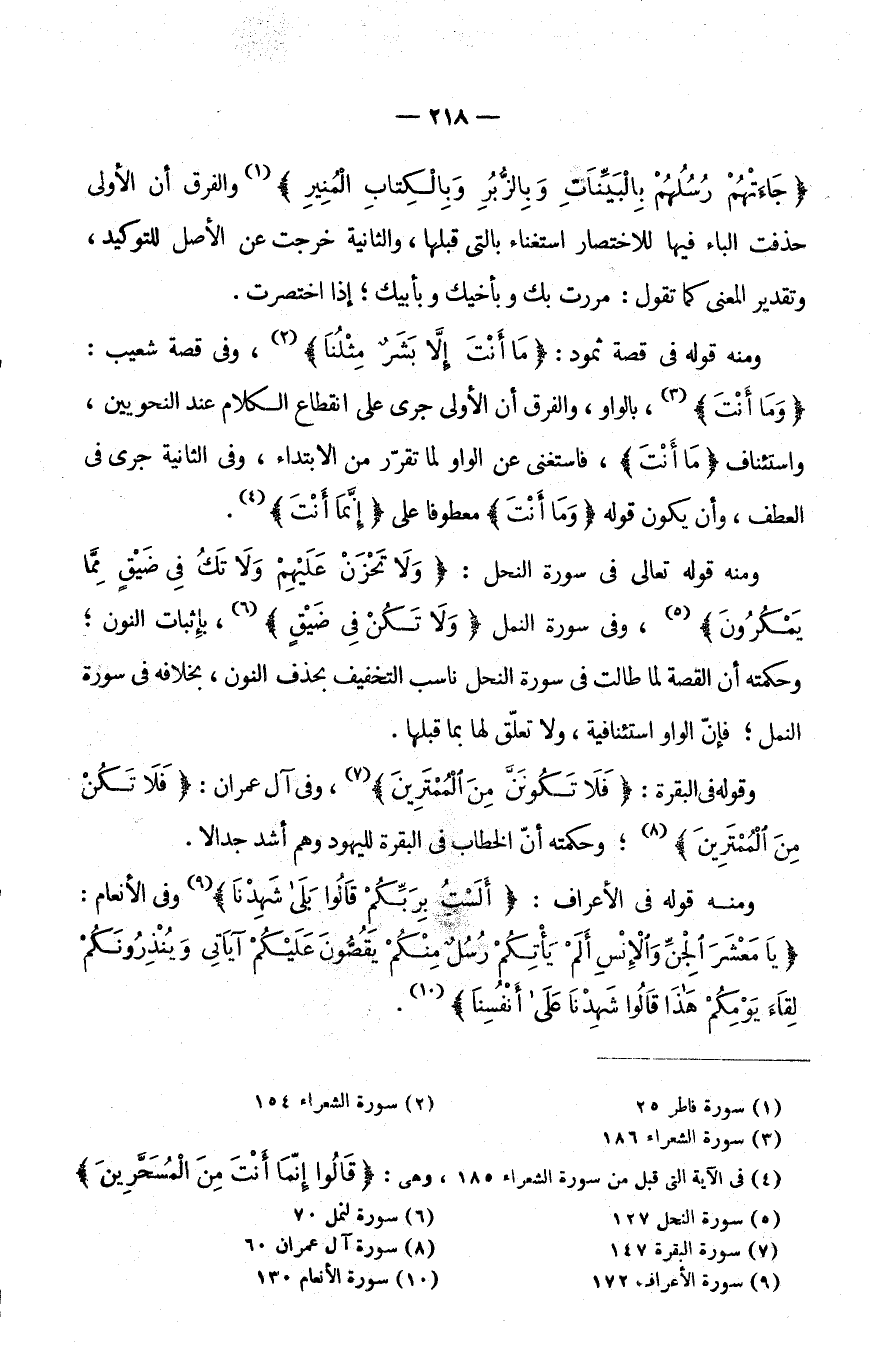 — ٢١٨ —
﴿ جَاءَتْهُمْ رُسُلُهُمْ بِالْبَيِّنَاتِ وَبِالزُّبُرِ وَبِالْكِتَابِ الْمُنِيرِ ﴾ (١) والفرق أن الأولى
حذفت الباء فيها للاختصار استغناء بالتى قبلها ، والثانية خرجت عن الأصل للتوكيد ،
وتقدير المعنى كما تقول : مررت بك و بأخيك و بأبيك ؛ إذا اختصرت .
ومنه قوله فى قصة ثمود : ﴿ مَا أَنْتَ إِلَّا بَشَرٌ مِثْلُنَا ﴾ (٢) ، وفى قصة شعيب :
﴿ وَمَا أَنْتَ ﴾ (٣) ، بالواو ، والفرق أن الأولى جرى على انقطاع الكلام عند النحويين ،
واستئناف ﴿ مَا أَنْتَ ﴾ ، فاستغنى عن الواو لما تقرّر من الابتداء ، وفى الثانية جرى فى
العطف ، وأن يكون قوله ﴿ وَمَا أَنْتَ ﴾ معطوفا على ﴿ إِنَّمَا أَنْتَ ﴾ (٤) .
ومنه قوله تعالى فى سورة النحل : ﴿ وَلَا تَحْزَنْ عَلَيْهِمْ وَلَا تَكُ فِى ضَيْقٍ مِمَّا
يَمْكُرُونَ ﴾ (٥) ، وفى سورة النمل ﴿ وَلَا تَكُنْ فِى ضَيْقٍ ﴾ (٦) ، بإثبات النون ؛
وحكمته أن القصة لما طالت فى سورة النحل ناسب التخفيف بحذف النون ، بخلافه فى سورة
النمل ؛ فإنّ الواو استئنافية ، ولا تعلّق لها بما قبلها .
وقوله فى البقرة : ﴿ فَلَا تَكُونَنَّ مِنَ ٱلْمُمْتَرِينَ ﴾ (٧) ، وفى آل عمران : ﴿ فَلَا تَكُنْ
مِنَ ٱلْمُمْتَرِينَ ﴾ (٨) ؛ وحكمته أنّ الخطاب فى البقرة لليهود وهم أشد جدالا .
ومنه قوله فى الأعراف : ﴿ أَلَسْتُ بِرَبِّكُمْ قَالُوا بَلَىٰ شَهِدْنَا ﴾ (٩) وفى الأنعام :
﴿ يَا مَعْشَرَ ٱلْجِنِّ وَٱلْإِنْسِ أَلَمْ يَأْتِكُمْ رُسُلٌ مِنْكُمْ يَقُصُّونَ عَلَيْكُمْ آيَاتِى وَيُنْذِرُونَكُمْ
لِقَاءَ يَوْمِكُمْ هَٰذَا قَالُوا شَهِدْنَا عَلَىٰ أَنْفُسِنَا ﴾ (١٠) .
(١) سورة فاطر ٢٥ (٢) سورة الشعراء ١٥٤
(٣) سورة الشعراء ١٨٦
(٤) فى الآية التى قبل من سورة الشعراء ١٨٥ ، وهى : ﴿ قَالُوا إِنَّمَا أَنْتَ مِنَ الْمُسَحَّرِينَ ﴾
(٥) سورة النحل ١٢٧ (٦) سورة لنمل ٧٠
(٧) سورة البقرة ١٤٧ (٨) سورة آل عمران ٦٠
(٩) سورة الأعراف ١٧٢ (١٠) سورة الأنعام ١٣٠